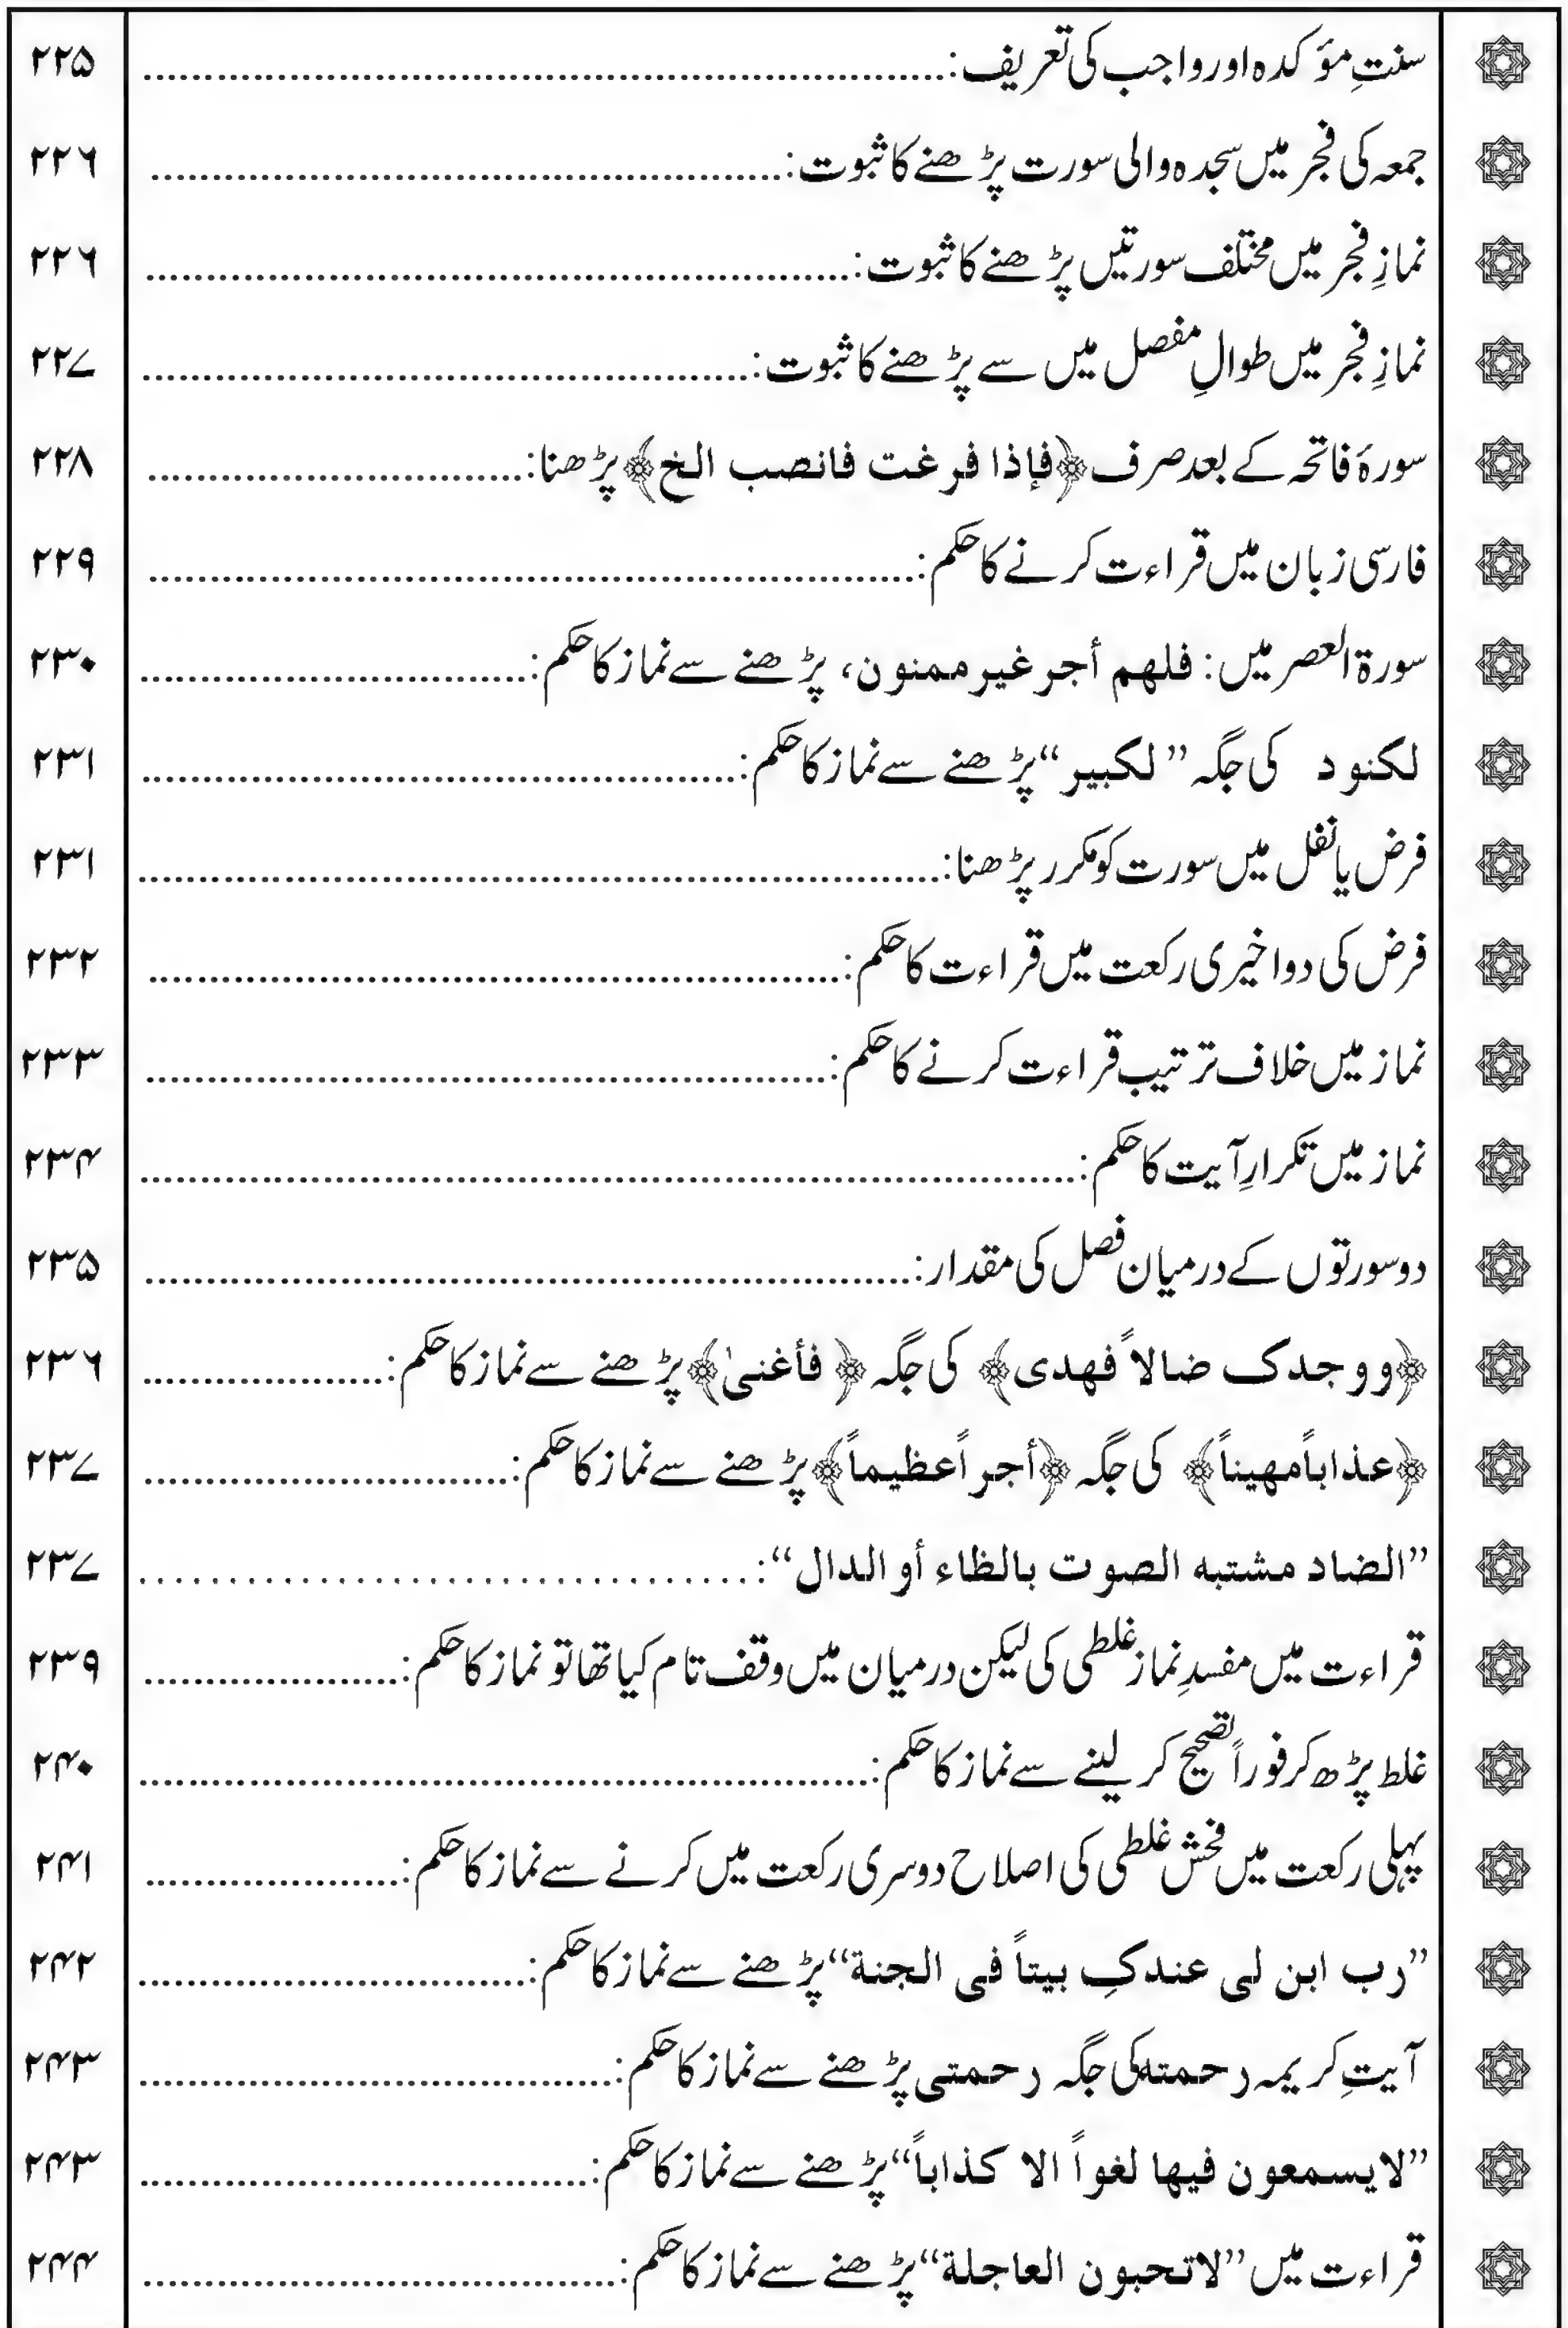 سنتِ مؤکدہ اور واجب کی تعریف: ۲۲۵
جمعہ کی فجر میں سجدہ والی سورت پڑھنے کا ثبوت: ۲۲۶
نمازِ فجر میں مختلف سورتیں پڑھنے کا ثبوت: ۲۲۶
نمازِ فجر میں طوالِ مفصل میں سے پڑھنے کا ثبوت: ۲۲۷
سورۂ فاتحہ کے بعد صرف ﴿فإذا فرغت فانصب الخ﴾ پڑھنا: ۲۲۸
فارسی زبان میں قراءت کرنے کا حکم: ۲۲۹
سورۃ العصر میں: فلهم أجر غیر ممنون، پڑھنے سے نماز کا حکم: ۲۳۰
لکنود کی جگہ ”لکبیر“ پڑھنے سے نماز کا حکم: ۲۳۱
فرض یا نفل میں سورت کو مکرر پڑھنا: ۲۳۱
فرض کی دو اخیری رکعت میں قراءت کا حکم: ۲۳۲
نماز میں خلاف ترتیب قراءت کرنے کا حکم: ۲۳۳
نماز میں تکرارِ آیت کا حکم: ۲۳۴
دو سورتوں کے درمیان فصل کی مقدار: ۲۳۵
﴿ووجدک ضالاً فهدی﴾ کی جگہ ﴿فأغنیٰ﴾ پڑھنے سے نماز کا حکم: ۲۳۶
﴿عذاباً مهیناً﴾ کی جگہ ﴿أجراً عظیماً﴾ پڑھنے سے نماز کا حکم: ۲۳۷
”الضاد مشتبه الصوت بالظاء أو الدال“: ۲۳۷
قراءت میں مفسدِ نماز غلطی کی لیکن درمیان میں وقف تام کیا تھا تو نماز کا حکم: ۲۳۹
غلط پڑھ کر فوراً تصحیح کر لینے سے نماز کا حکم: ۲۴۰
پہلی رکعت میں فحش غلطی کی اصلاح دوسری رکعت میں کرنے سے نماز کا حکم: ۲۴۱
”رب ابن لی عندکِ بیتاً فی الجنة“ پڑھنے سے نماز کا حکم: ۲۴۲
آیتِ کریمہ رحمته کی جگہ رحمتی پڑھنے سے نماز کا حکم: ۲۴۳
”لا یسمعون فیها لغواً الا کذاباً“ پڑھنے سے نماز کا حکم: ۲۴۳
قراءت میں ”لا تحبون العاجلة“ پڑھنے سے نماز کا حکم: ۲۴۴